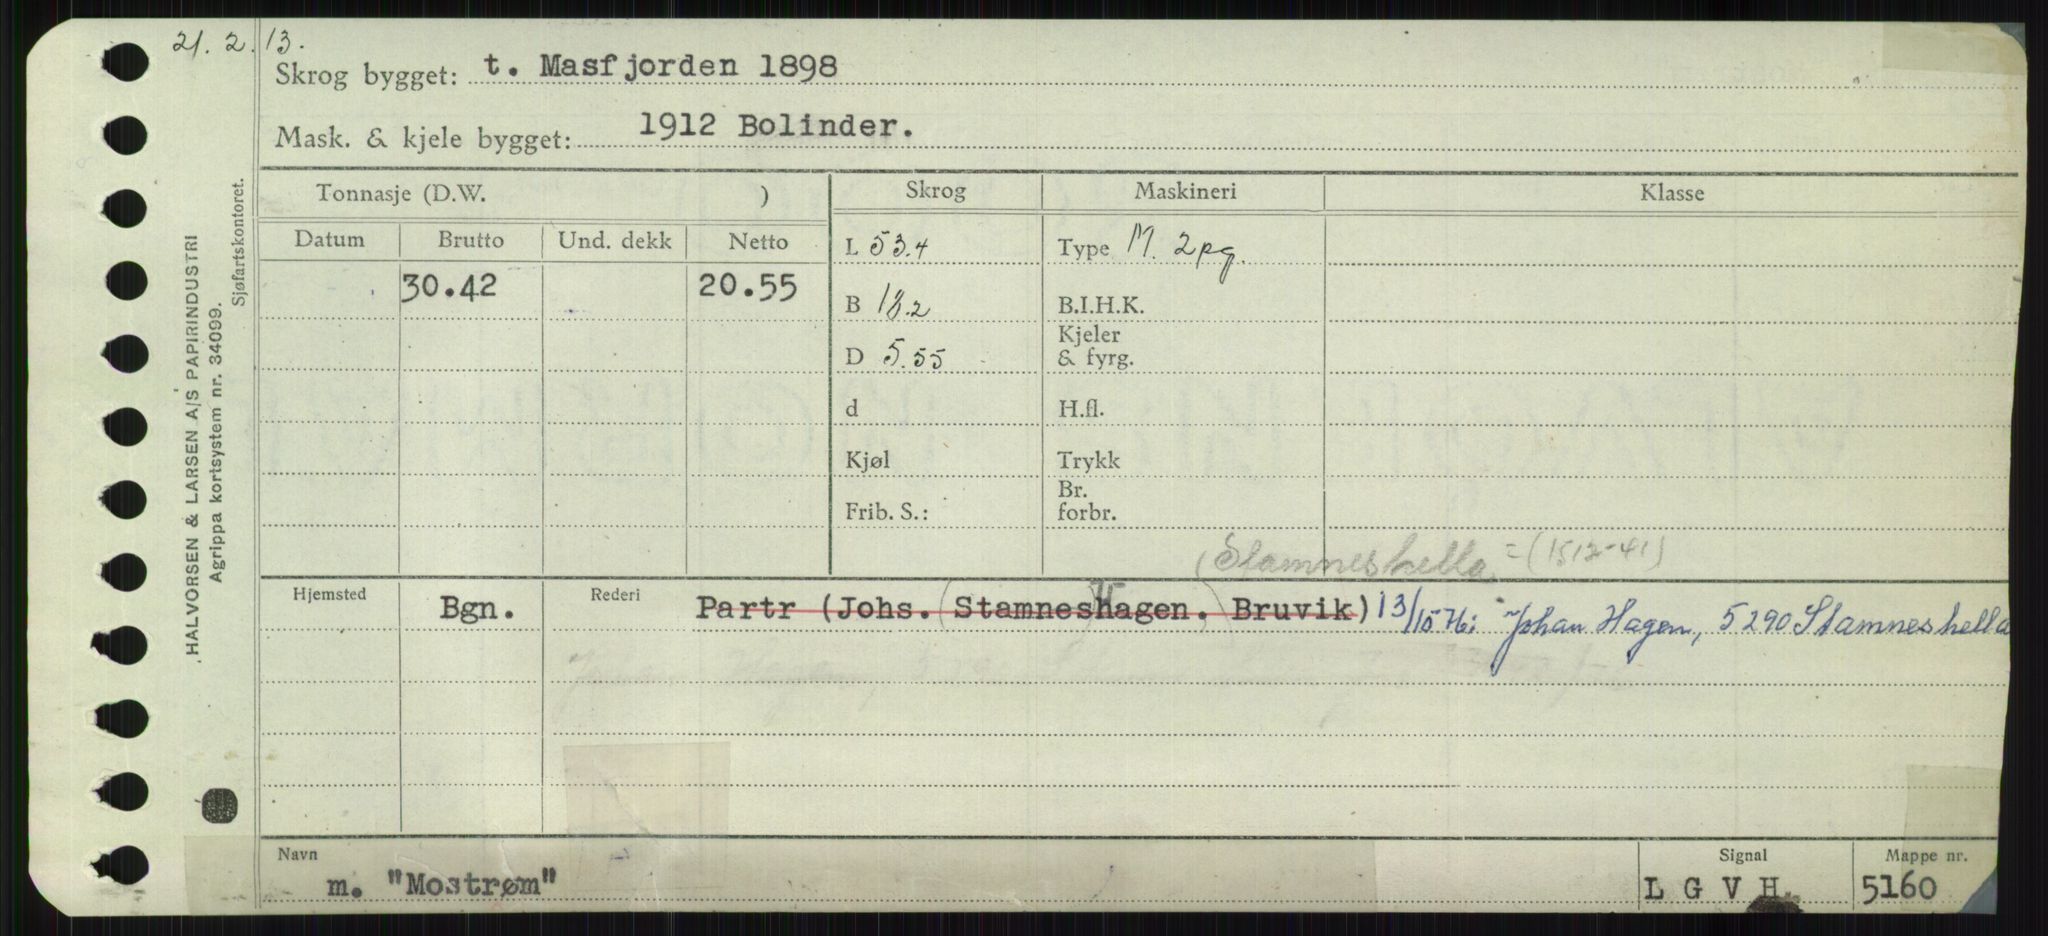 21. 2. 13.
Skrog bygget: t. Masfjorden 1898
Mask. & kjele bygget: 1912 Bolinder.
Tonnasje (D.W. )
Skrog
Maskineri
Klasse
Datum
Brutto
Und. dekk
Netto
L 53.4
Type M. 2pg.
30.42
20.55
B 18.2
B.I.H.K.
D 5.55
Kjeler
& fyrg.
d
H.fl.
Kjøl
Trykk
Frib. S.:
Br.
forbr.
(Stamneshella = (1512-41)
Hjemsted
Bgn.
Rederi
Partr (Johs. (Stamnes) Hagen. Bruvik) 13/10 76: Johan Hagen, 5290 Stamneshella
Navn
m. "Mostrøm"
Signal
L G V H.
Mappe nr.
5160
HALVORSEN & LARSEN A/S PAPIRINDUSTRI
Agrippa kortsystem nr. 34099.
Sjøfartskontoret.